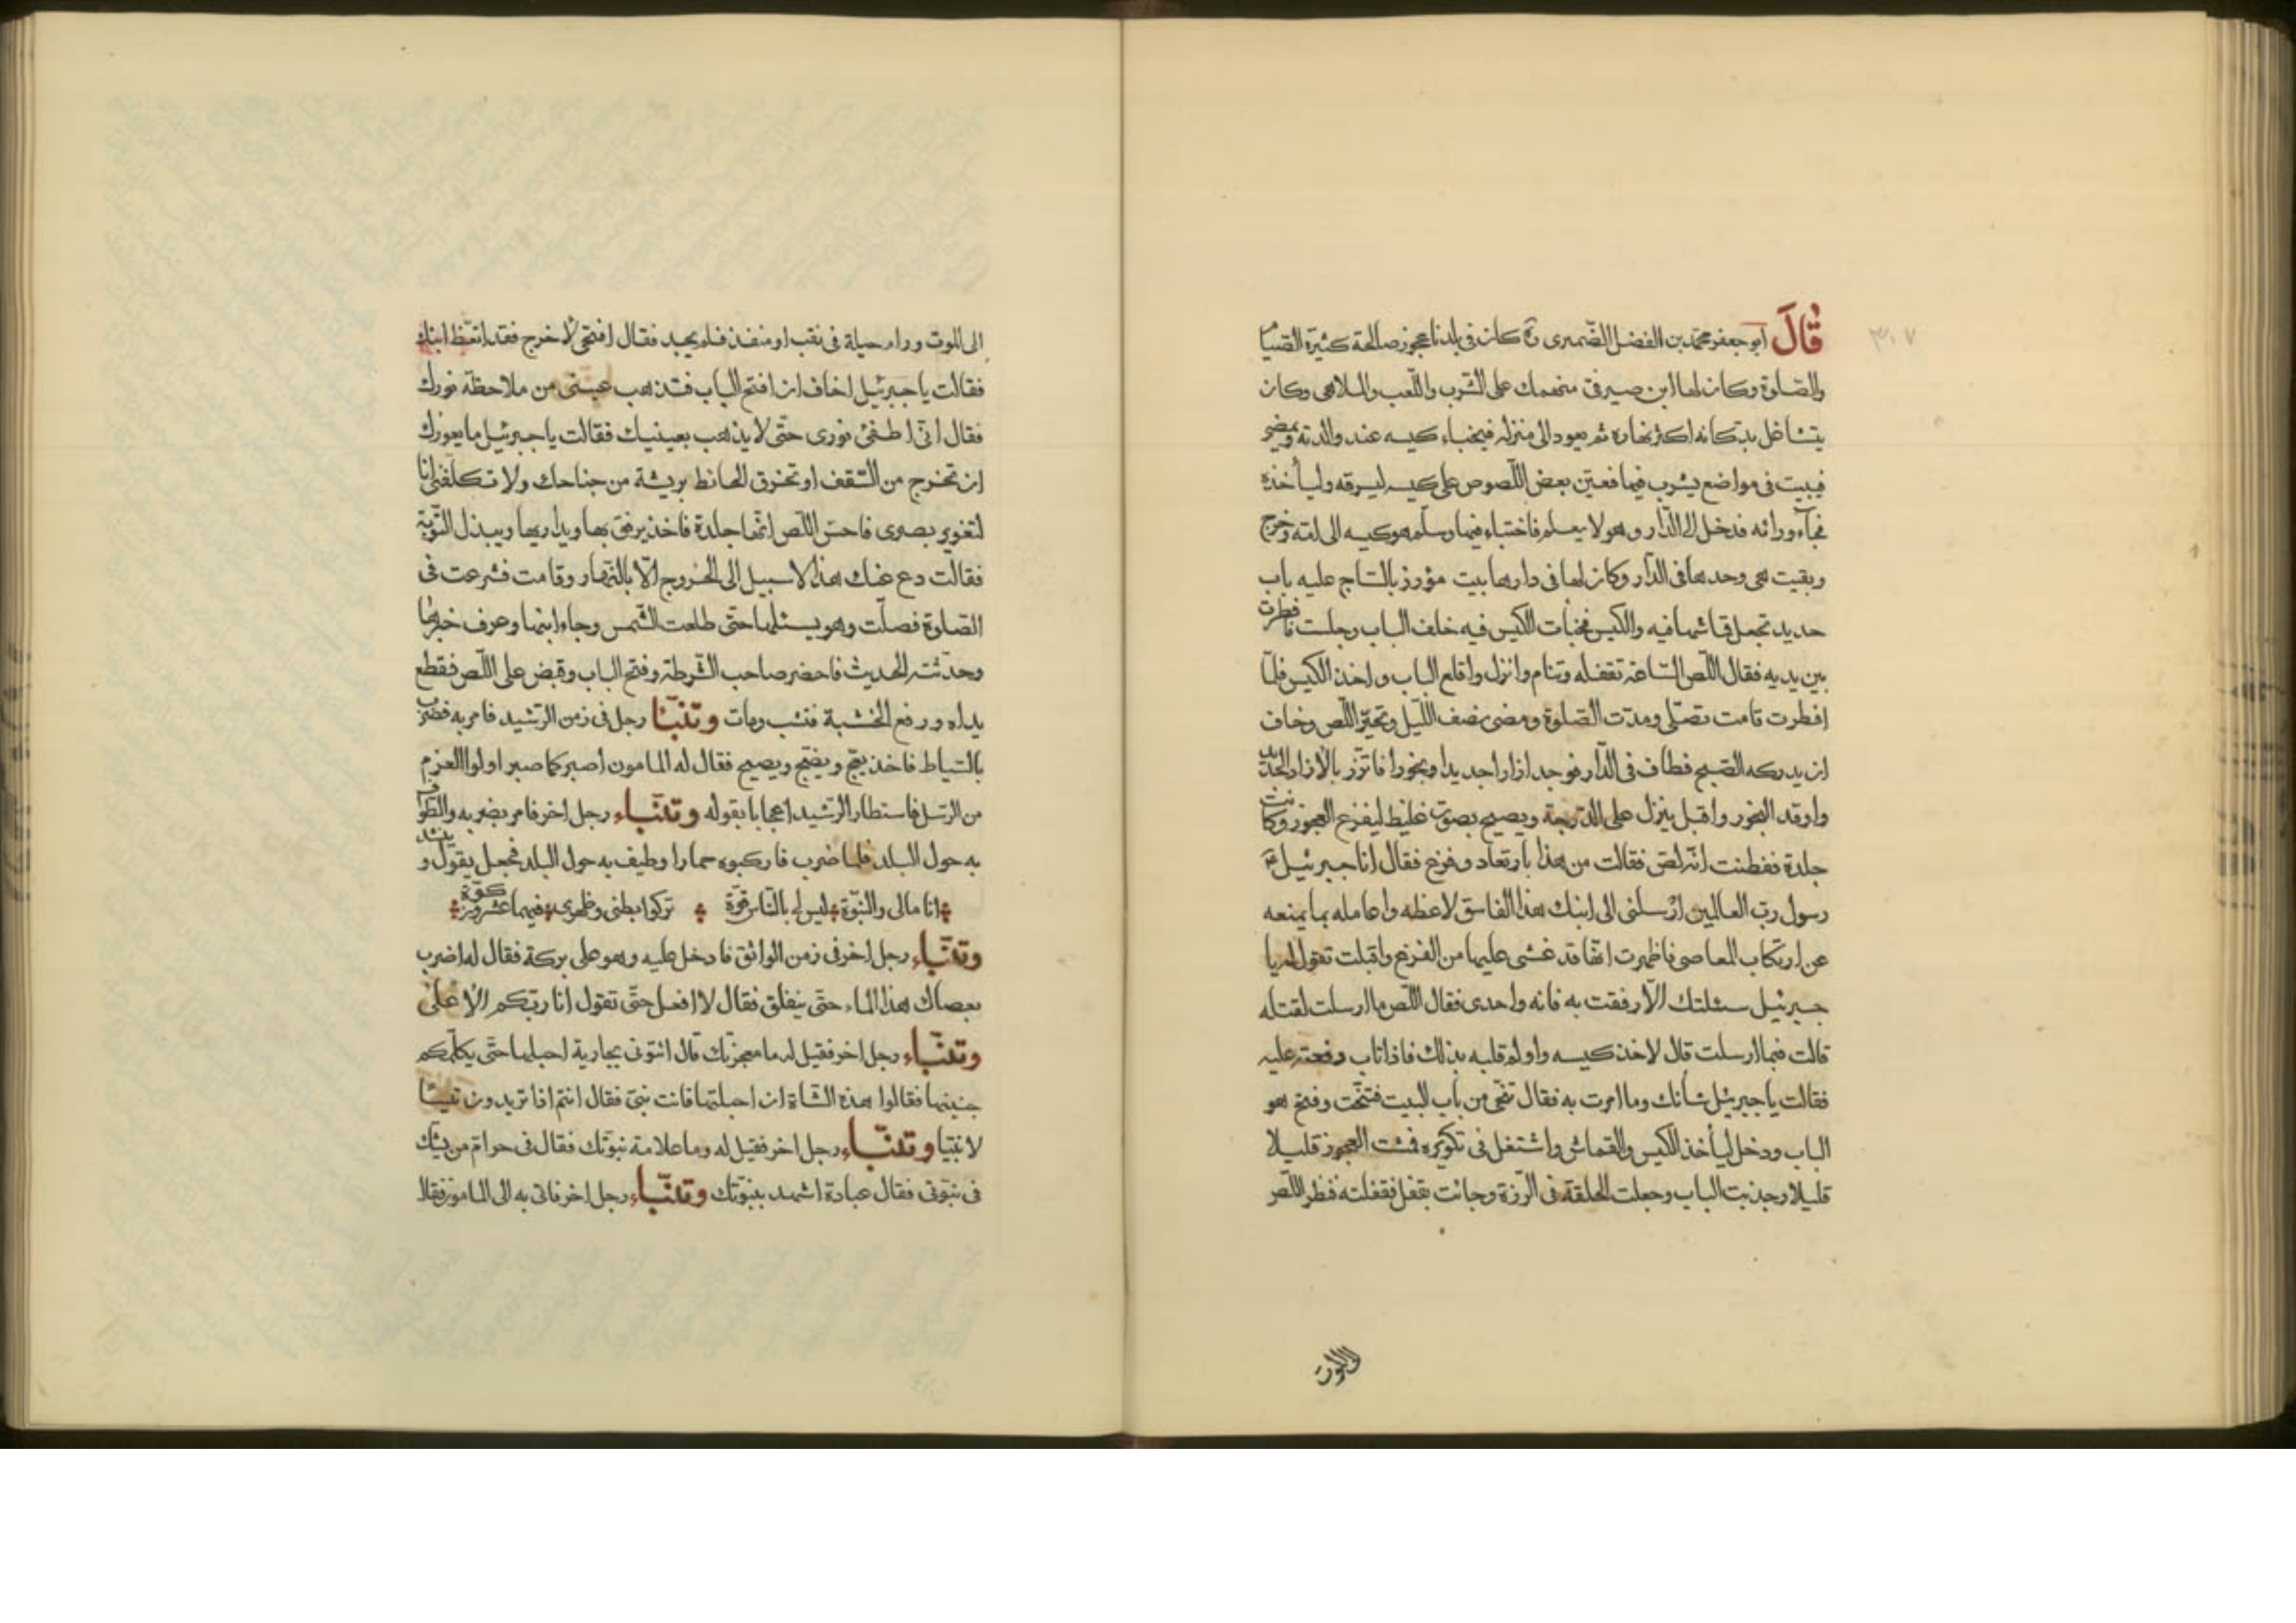 قَالَ ابو جعفر محمد بن الفضل الضميرى ره كان فى بلدنا عجوز صالحة كثيرة الصيام
والصلوة وكان لها ابن صيرفى منهمك على الشرب واللعب والملاهى وكان
يتشاغل بدكانه اكثر نهاره ثم يعود الى منزله فيخباء كيسه عند والدته ويمضى
فيبيت فى مواضع يشرب فيها فعين بعض اللصوص على كيسه ليسرقه وليأخذه
فجاء ورائه فدخل الى الدار وهو لا يعلم فاختباء فيها وسلم هو كيسه الى امه وخرج
وبقيت هى وحدها فى الدار وكان لها فى دارها بيت مؤزر بالساج عليه باب
حديد تجعل قماشها فيه والكيس فخبأت الكيس فيه خلف الباب وجلست فافطرت
بين يديه فقال اللص الساعة تقفله وتنام وانزل واقلع الباب واخذ الكيس فلما
افطرت قامت تصلى ومدت الصلوة ومضى نصف الليل وتحير اللص وخاف
ان يدركه الصبح فطاف فى الدار فوجد ازارا جديدا وبخورا فاتزر بالازار الجديد
واوقد البخور واقبل ينزل على الدرجة ويصيح بصوت غليظ ليفزع العجوز وكانت
جلدة ففطنت انه لص فقالت من هذا بارتعاد وفزع فقال انا جبرئيل
رسول رب العالمين ارسلنى الى ابنك هذا الفاسق لاعظه واعامله بما يمنعه
عن ارتكاب المعاصى فاظهرت انها قد غشى عليها من الفزع واقبلت تقول له يا
جبرئيل سئلتك الا رفقت به فانه واحدى فقال اللص ما ارسلت لقتله
قالت فبما ارسلت قال لاخذ كيسه واولم قلبه بذلك فاذا تاب دفعته عليه
فقالت يا جبرئيل شأنك وما امرت به فقال تنحى من باب البيت فتنحت وفتح هو
الباب ودخل ليأخذ الكيس والقماش واشتغل فى تكويره فمشت العجوز قليلا
قليلا وجذبت الباب وجعلت الحلقة فى الرزة وجائت بقفل فقفلته فنظر اللص
الى الموت ورام حيلة فى نقب او منفذ فلم يجد فقال افتحى لاخرج فقد اتعظ ابنك
فقالت يا جبرئيل اخاف ان افتح الباب فتذهب عينى من ملاحظة نورك
فقال انى اطفئ نورى حتى لا يذهب بعينيك فقالت يا جبرئيل ما يعوزك
ان تخرج من السقف او تخرق الحائط بريشة من جناحك ولا تكلفنى انا
لتغوير بصرى فاحس اللص انها جلدة فاخذ يرفق بها ويداريها ويبذل التوبة
فقالت دع عنك هذا لا سبيل الى الخروج الا بالنهار وقامت فشرعت فى
الصلوة فصلت وهو يسئلها حتى طلعت الشمس وجاء ابنها وعرف خبرها
وحدثته الحديث فاحضر صاحب الشرطة وفتح الباب وقبض على اللص فقطع
يداه ورفع الخشبة فنشب ومات وتنبأ رجل فى زمن الرشيد فامر به فضرب
بالسياط فاخذ يعج ويضج ويصيح فقال له المامون اصبر كما صبر اولوا العزم
من الرسل فاستطار الرشيد اعجابا بقوله وتنباء رجل اخر فامر بضربه والطواف
به حول البلد فلما ضرب فاركبوه حمارا وطيف به حول البلد فجعل يقول وينشد
انا مالى والنبوة ليس لى بالناس قوة تركوا بطنى وظهرى فيهما عشرون كوة
وتنباء رجل اخر فى زمن الواثق فادخل عليه وهو على بركة فقال له اضرب
بعصاك هذا الماء حتى ينفلق فقال لا افعل حتى تقول انا ربكم الاعلى
وتنباء رجل اخر فقيل له ما معجزتك قال ائتونى بجارية احبلها حتى يكلمكم
جنينها فقالوا هذه الشاة ان احبلتها فانت نبى فقال انتم اذا تريدون تيسا
لا نبيا وتنباء رجل اخر فقيل له وما علامة نبوتك فقال فى حرام من يشك
فى نبوتى فقال عبادة اشهد بنبوتك وتنباء رجل اخر فاتى به الى المامون فقال